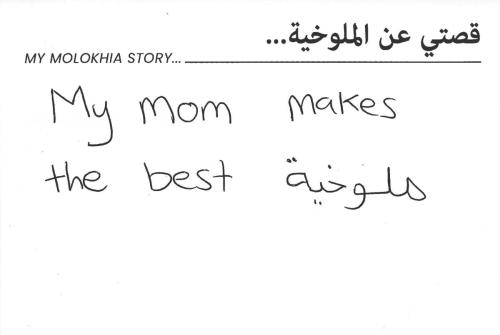 قصتي عن الملوخية...
MY MOLOKHIA STORY...
My mom makes
the best ملوخية